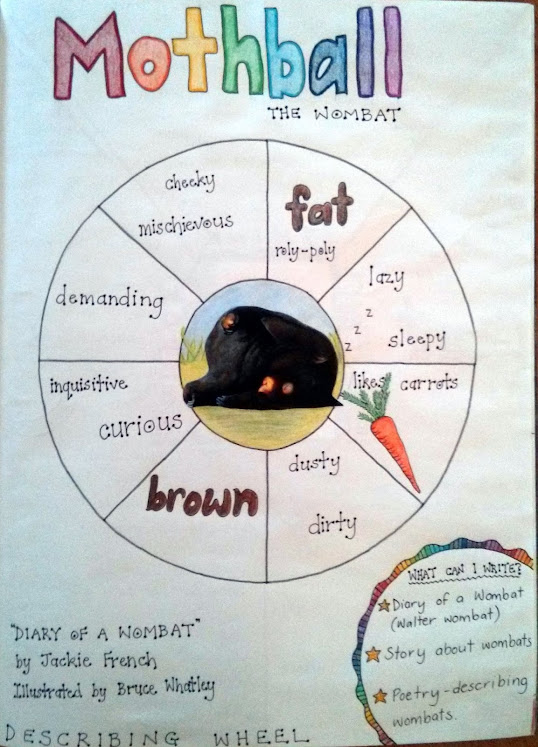 Mothball
THE WOMBAT
cheeky
mischievous
fat
roly-poly
lazy
z
z
z
sleepy
likes carrots
dusty
dirty
brown
inquisitive
curious
demanding
"DIARY OF A WOMBAT"
by Jackie French
Illustrated by Bruce Whatley
DESCRIBING WHEEL
WHAT CAN I WRITE?
Diary of a Wombat
(Walter wombat)
Story about wombats
Poetry-describing
wombats.